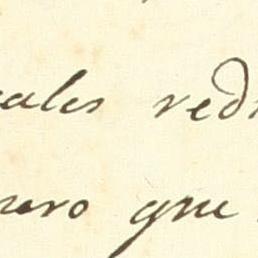 ales red
nero que